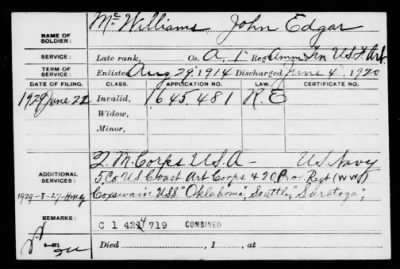 NAME OF SOLDIER: McWilliams John Edgar
SERVICE: Late rank, Co. A, 1st Reg Amm Trn U.S. Art.
TERM OF SERVICE: Enlisted Aug 29, 1914 Discharged June 4, 1920
DATE OF FILING. CLASS. APPLICATION NO. LAW. CERTIFICATE NO.
1929 June 22 Invalid, 1645,481 R.E
Widow,
Minor,
Q.M. Corps U.S.A - U.S. Navy
ADDITIONAL SERVICES: 5 Co U.S. Coast Art Corps & 20 Pro. Regt (WW)
1929-8-27 Coxswain USS "Oklahoma", Seattle, Saratoga",
REMARKS: C 1 434 719 COMBINED
Died , 1 , at